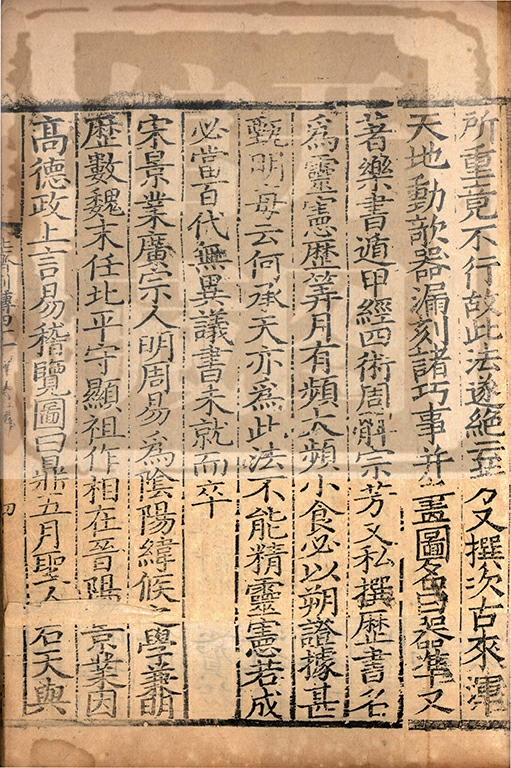 所重竟不行故此法遂絕又撰次古來渾
天地動欹器漏刻諸巧事并畫圖名曰器準又
著樂書遁甲經四術周髀宗芳又私撰歷書名
爲靈憲歷筭月有頻大頻小食必以朔證據甚
甄明每云何承天亦爲此法不能精靈憲若成
必當百代無異議書未就而卒
宋景業廣宗人明周易爲陰陽緯候之學兼明
歷數魏末任北平守顯祖作相在晉陽景業因
高德政上言易稽覽圖曰鼎五月聖人天與